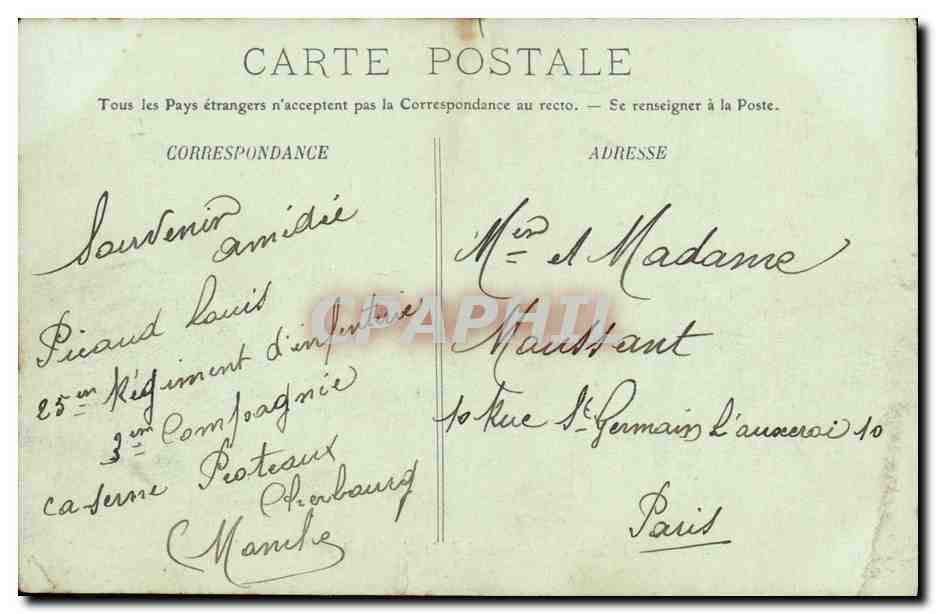 CARTE POSTALE
Tous les Pays étrangers n'acceptent pas la Correspondance au recto. — Se renseigner à la Poste.
CORRESPONDANCE
Souvenir
amidée
Picaud Louis
25em Régiment d'infenterie
3em Compagnie
caserne Proteaux
Cherbourg
Manche
ADRESSE
Mer et Madame
Maussant
10 Rue St Germain L'auxeroi 10
Paris
CPAPHIL